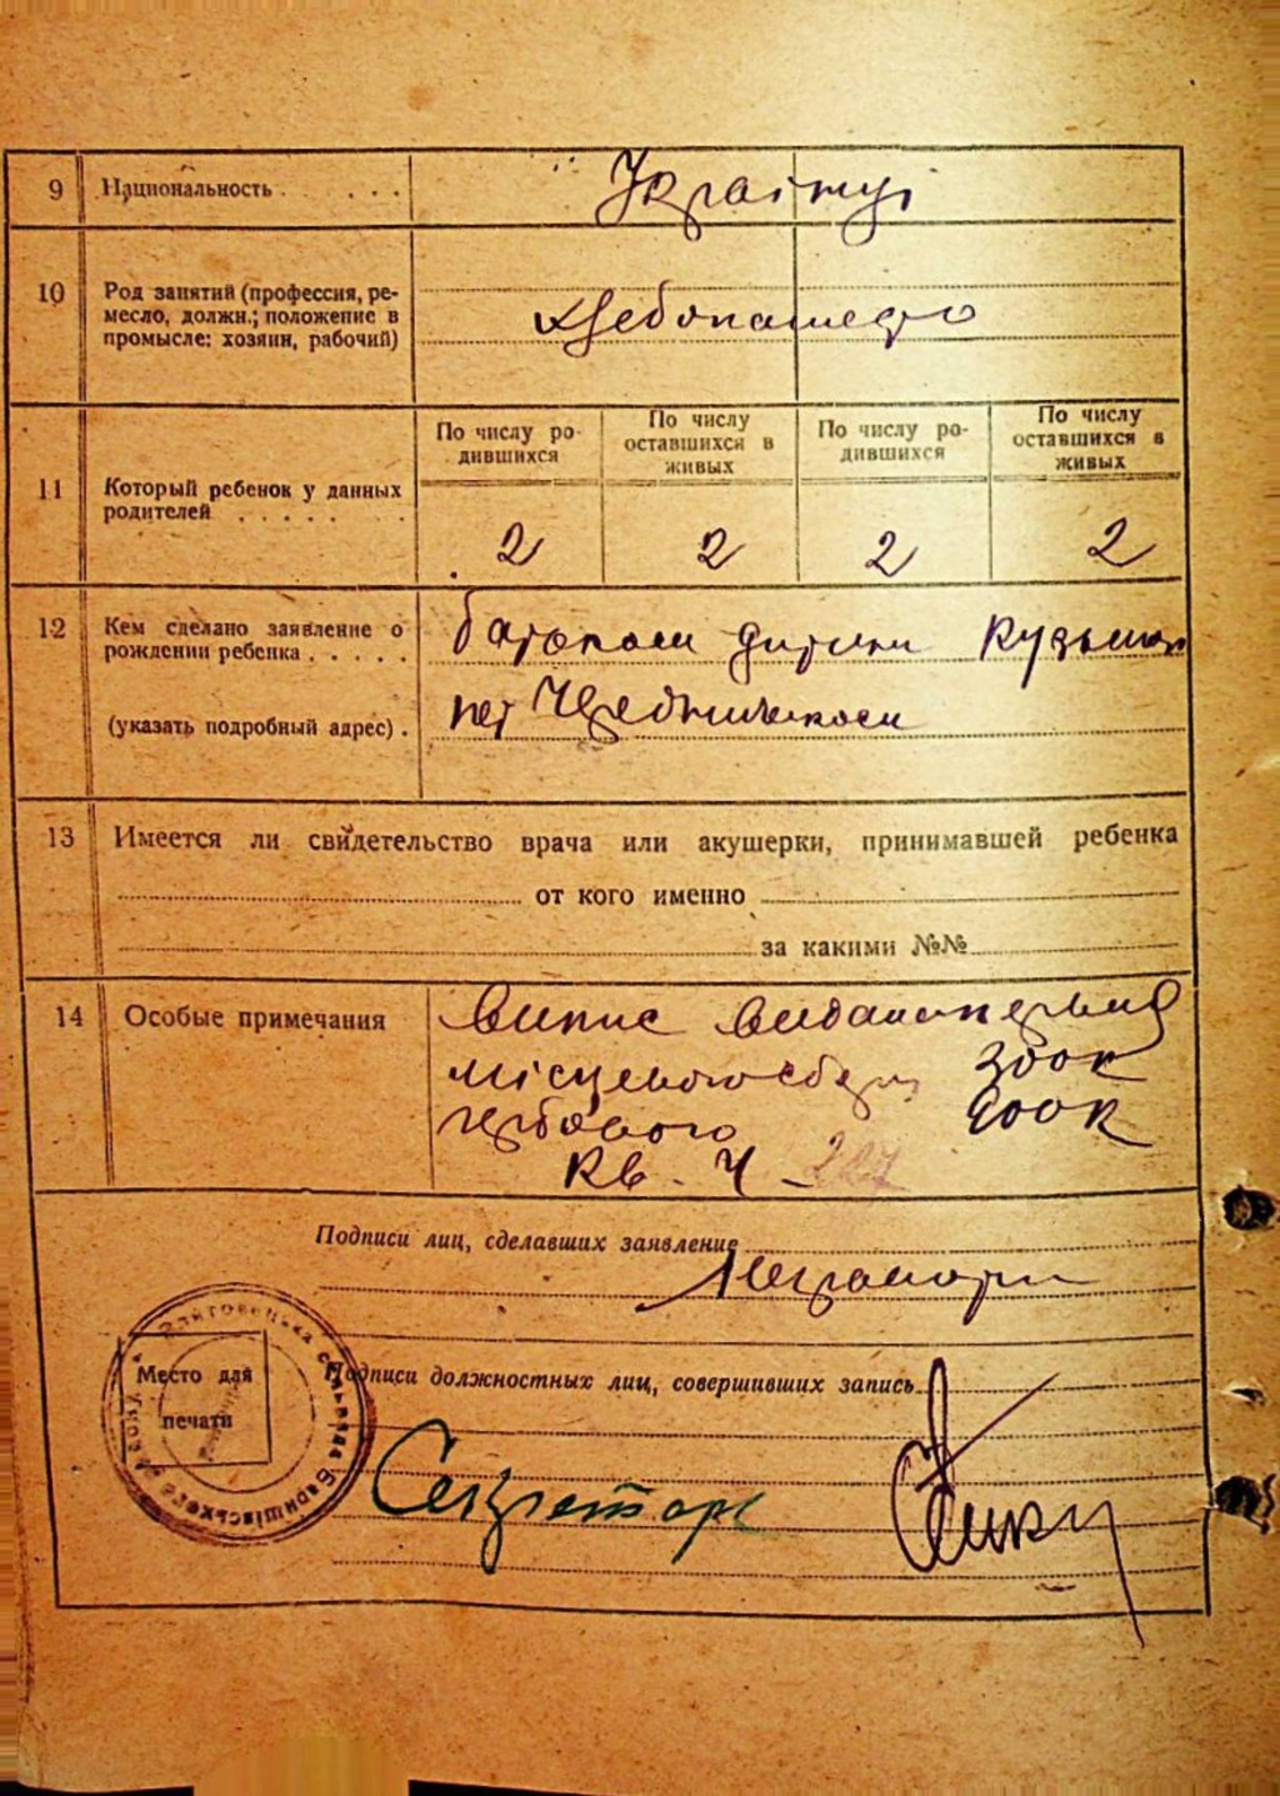 9 Национальность . . . . . Українці
10 Род занятий (профессия, ре-
месло, должн.; положение в
промысле: хозяин, рабочий)
хлебопашество
По числу ро-
дившихся
По числу
оставшихся в
живых
По числу ро-
дившихся
По числу
оставшихся в
живых
11 Который ребенок у данных
родителей . . . . . .
2 2 2 2
12 Кем сделано заявление о
рождении ребенка . . . . .
(указать подробный адрес) .
батьком дитини Кузьмою
13 Имеется ли свидетельство врача или акушерки, принимавшей ребенка
от кого именно
за какими №№
14 Особые примечания
Випис
місцевого збору 300 к
гербового 200 к
Кв. Ч
Подписи лиц, сделавших заявление
Неграмотн
Место для
печати
Подписи должностных лиц, совершивших запись
Секретарь